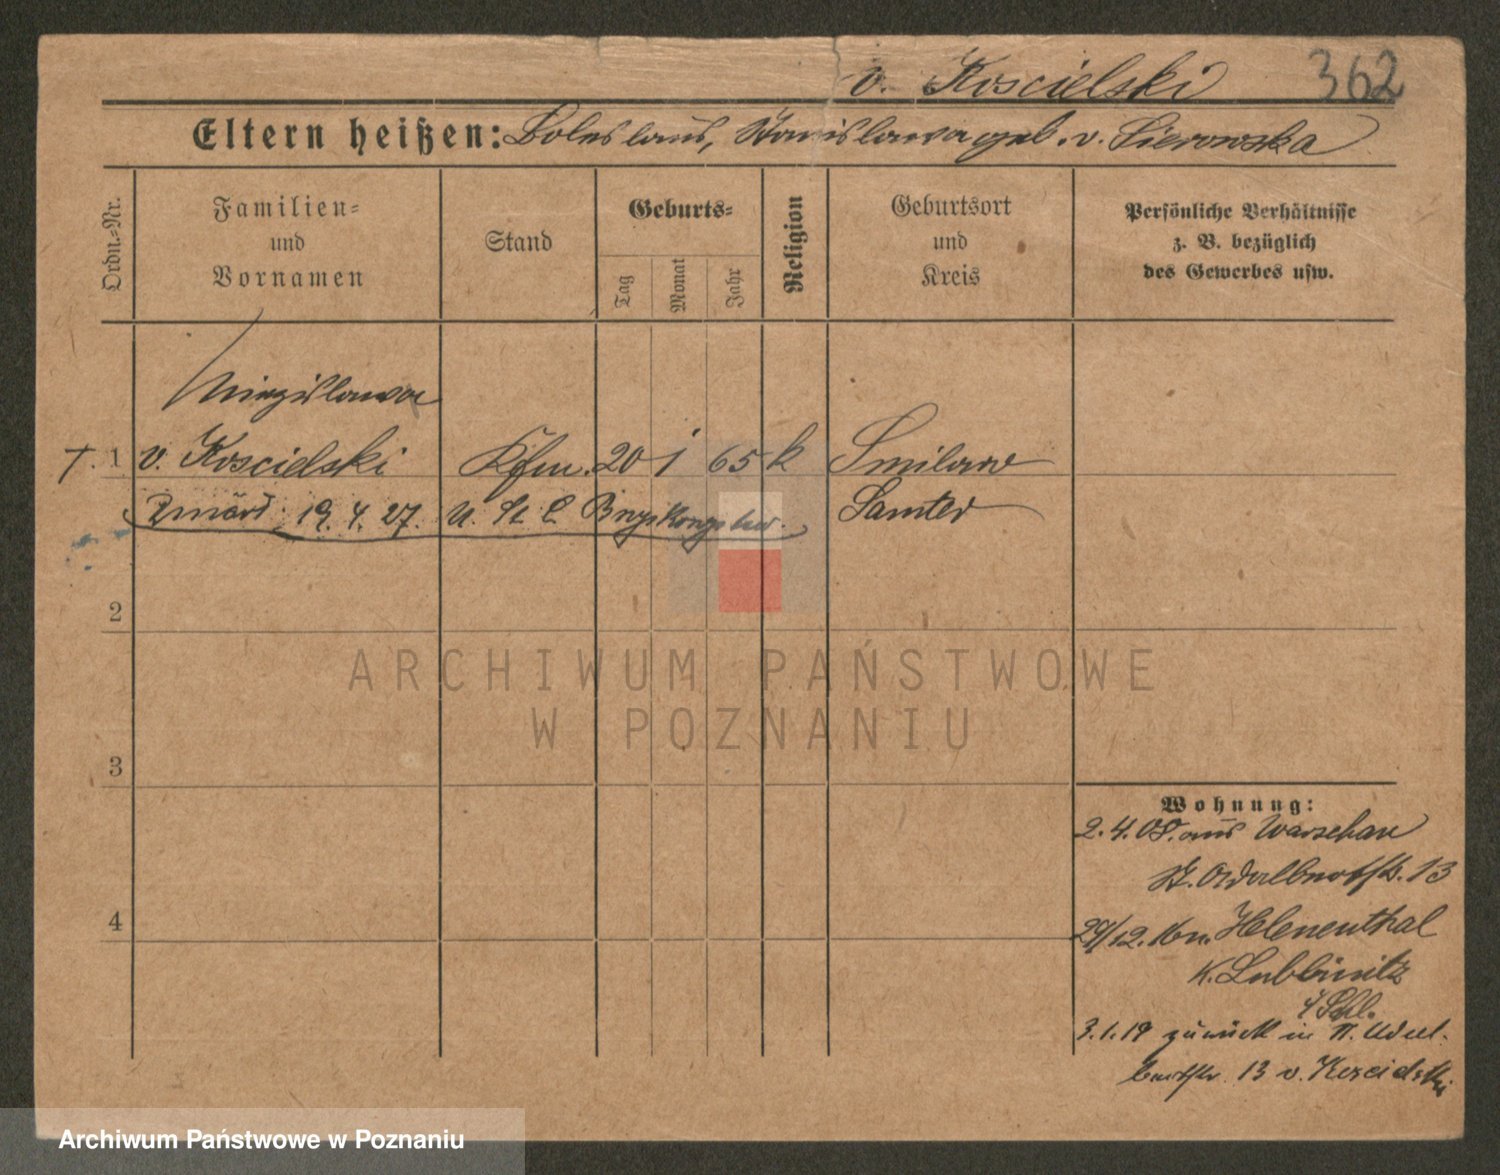 v. Koscielski 362
Eltern heißen: Boleslaus, Stanislawa geb. v. Sierowska
Ordn.-Nr.
Familien-
und
Vornamen
Stand
Geburts-
Tag
Monat
Jahr
Religion
Geburtsort
und
Kreis
Persönliche Verhältnisse
z. B. bezüglich
des Gewerbes usw.
Miezislawa
†. 1 v. Koscielski Kfm. 20 1 65 k Smilowo
Zmarł 19.4.27. Samter
2
ARCHIWUM PAŃSTWOWE
W POZNANIU
3
4
Wohnung:
2.4.08. aus Warschau
St. Adalbertstr. 13
29/12. 16 n. Helenenthal
K. Lublinitz
3.1.19 zurück in St. Adal-
bertstr. 13 v. Koscielski
Archiwum Państwowe w Poznaniu